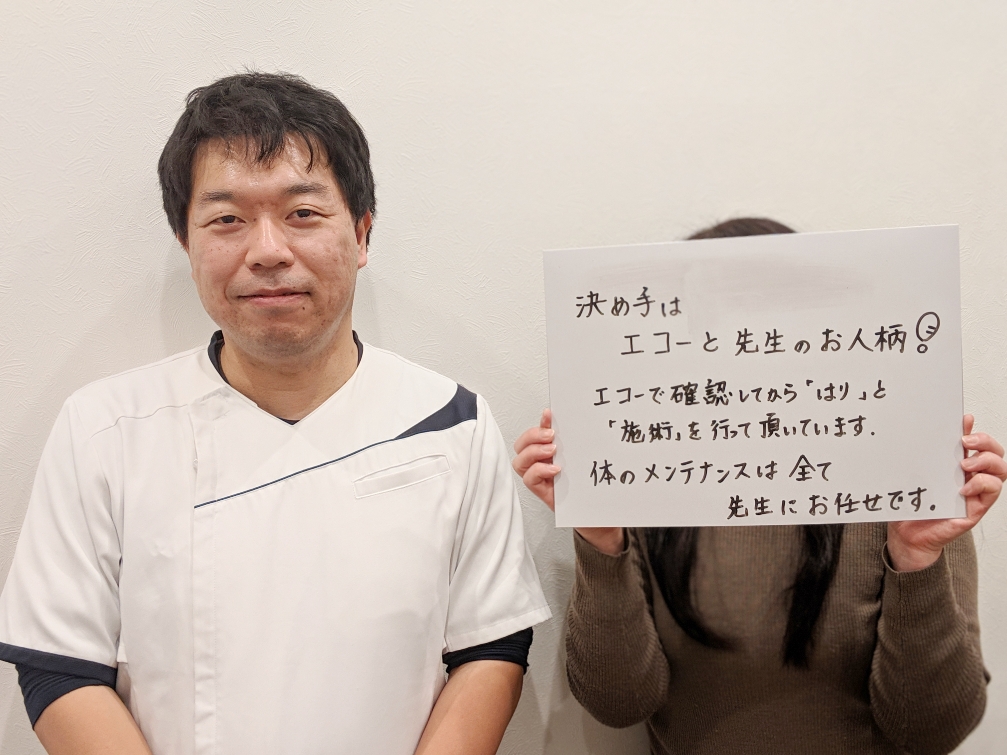 決め手は
エコーと先生のお人柄!
エコーで確認してから「はり」と
「施術」を行って頂いています.
体のメンテナンスは全て
先生にお任せです。